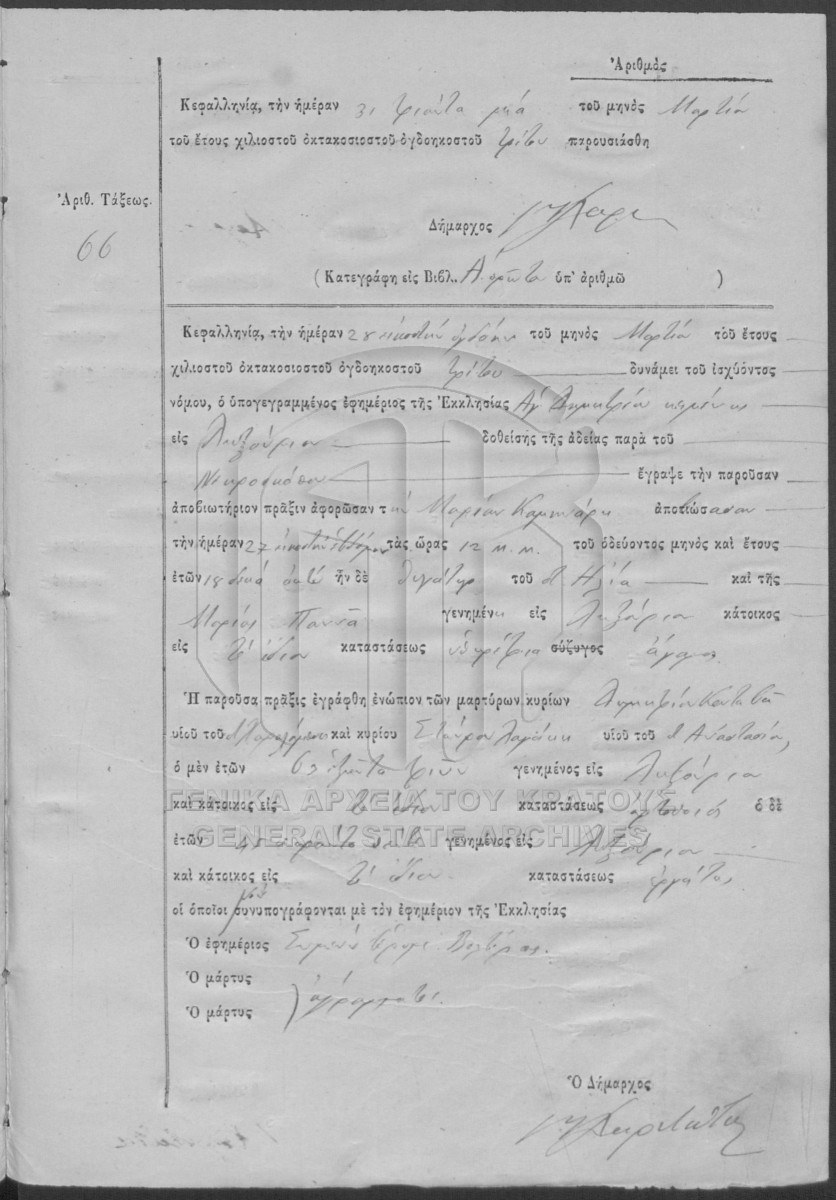 Ἀριθμὸς
Κεφαλληνίᾳ, τὴν ἡμέραν 31 τριάντα μιά τοῦ μηνὸς Μαρτίου
τοῦ ἔτους χιλιοστοῦ ὀκτακοσιοστοῦ ὀγδοηκοστοῦ τρίτου παρουσιάσθη
Ἀριθ. Τάξεως.
66
Δήμαρχος
(Κατεγράφη εἰς Βιβλ. Α΄ ὑπ' ἀριθμῶ )
Κεφαλληνίᾳ, τὴν ἡμέραν 28 εἰκοστήν ὀγδόην τοῦ μηνὸς Μαρτίου τοῦ ἔτους
χιλιοστοῦ ὀκτακοσιοστοῦ ὀγδοηκοστοῦ τρίτου δυνάμει τοῦ ἰσχύοντος
νόμου, ὁ ὑπογεγραμμένος ἐφημέριος τῆς Ἐκκλησίας Ἁγ Δημητρίου κειμένης
εἰς Ληξούριον δοθείσης τῆς ἀδείας παρὰ τοῦ
Νεκροσκόπου ἔγραψε τὴν παροῦσαν
ἀποβιωτήριον πρᾶξιν ἀφορῶσαν την Μαρίαν ἀποβιώσασαν
τὴν ἡμέραν 27 εἰκοστήν ἑβδόμην τὰς ὥρας 12 μ. μ. τοῦ ὁδεύοντος μηνὸς καὶ ἔτους
ἐτῶν 18 δεκά οκτώ ἦν δὲ θυγάτηρ τοῦ Ηλία καὶ τῆς
Μαρίας Παννᾶ γενημένη εἰς Ληξούριον κάτοικος
εἰς τό ίδιον καταστάσεως ὑπηρέτρια σύζυγος άγαμος
Ἡ παροῦσα πρᾶξις ἐγράφθη ἐνώπιον τῶν μαρτύρων κυρίων Δημητρίου
υἱοῦ τοῦ καὶ κυρίου Σταύρου υἱοῦ τοῦ Αναστασίου,
ὁ μὲν ἐτῶν 63 ἑξῆντα τριῶν γενημένος εἰς Ληξούριον
καὶ κάτοικος εἰς τό ίδιον καταστάσεως ὁ δὲ
ΓΕΝΙΚΑ ΑΡΧΕΙΑ ΤΟΥ ΚΡΑΤΟΥΣ
GENERAL STATE ARCHIVES
ἐτῶν 45 γενημένος εἰς Ληξούριον
καὶ κάτοικος εἰς τό ίδιον καταστάσεως ἐργάτης
οἱ ὁποῖοι μή συνυπογράφονται μὲ τὸν ἐφημέριον τῆς Ἐκκλησίας
Ὁ ἐφημέριος
Ὁ μάρτυς
Ὁ μάρτυς ἀγράμματοι
Ὁ Δήμαρχος